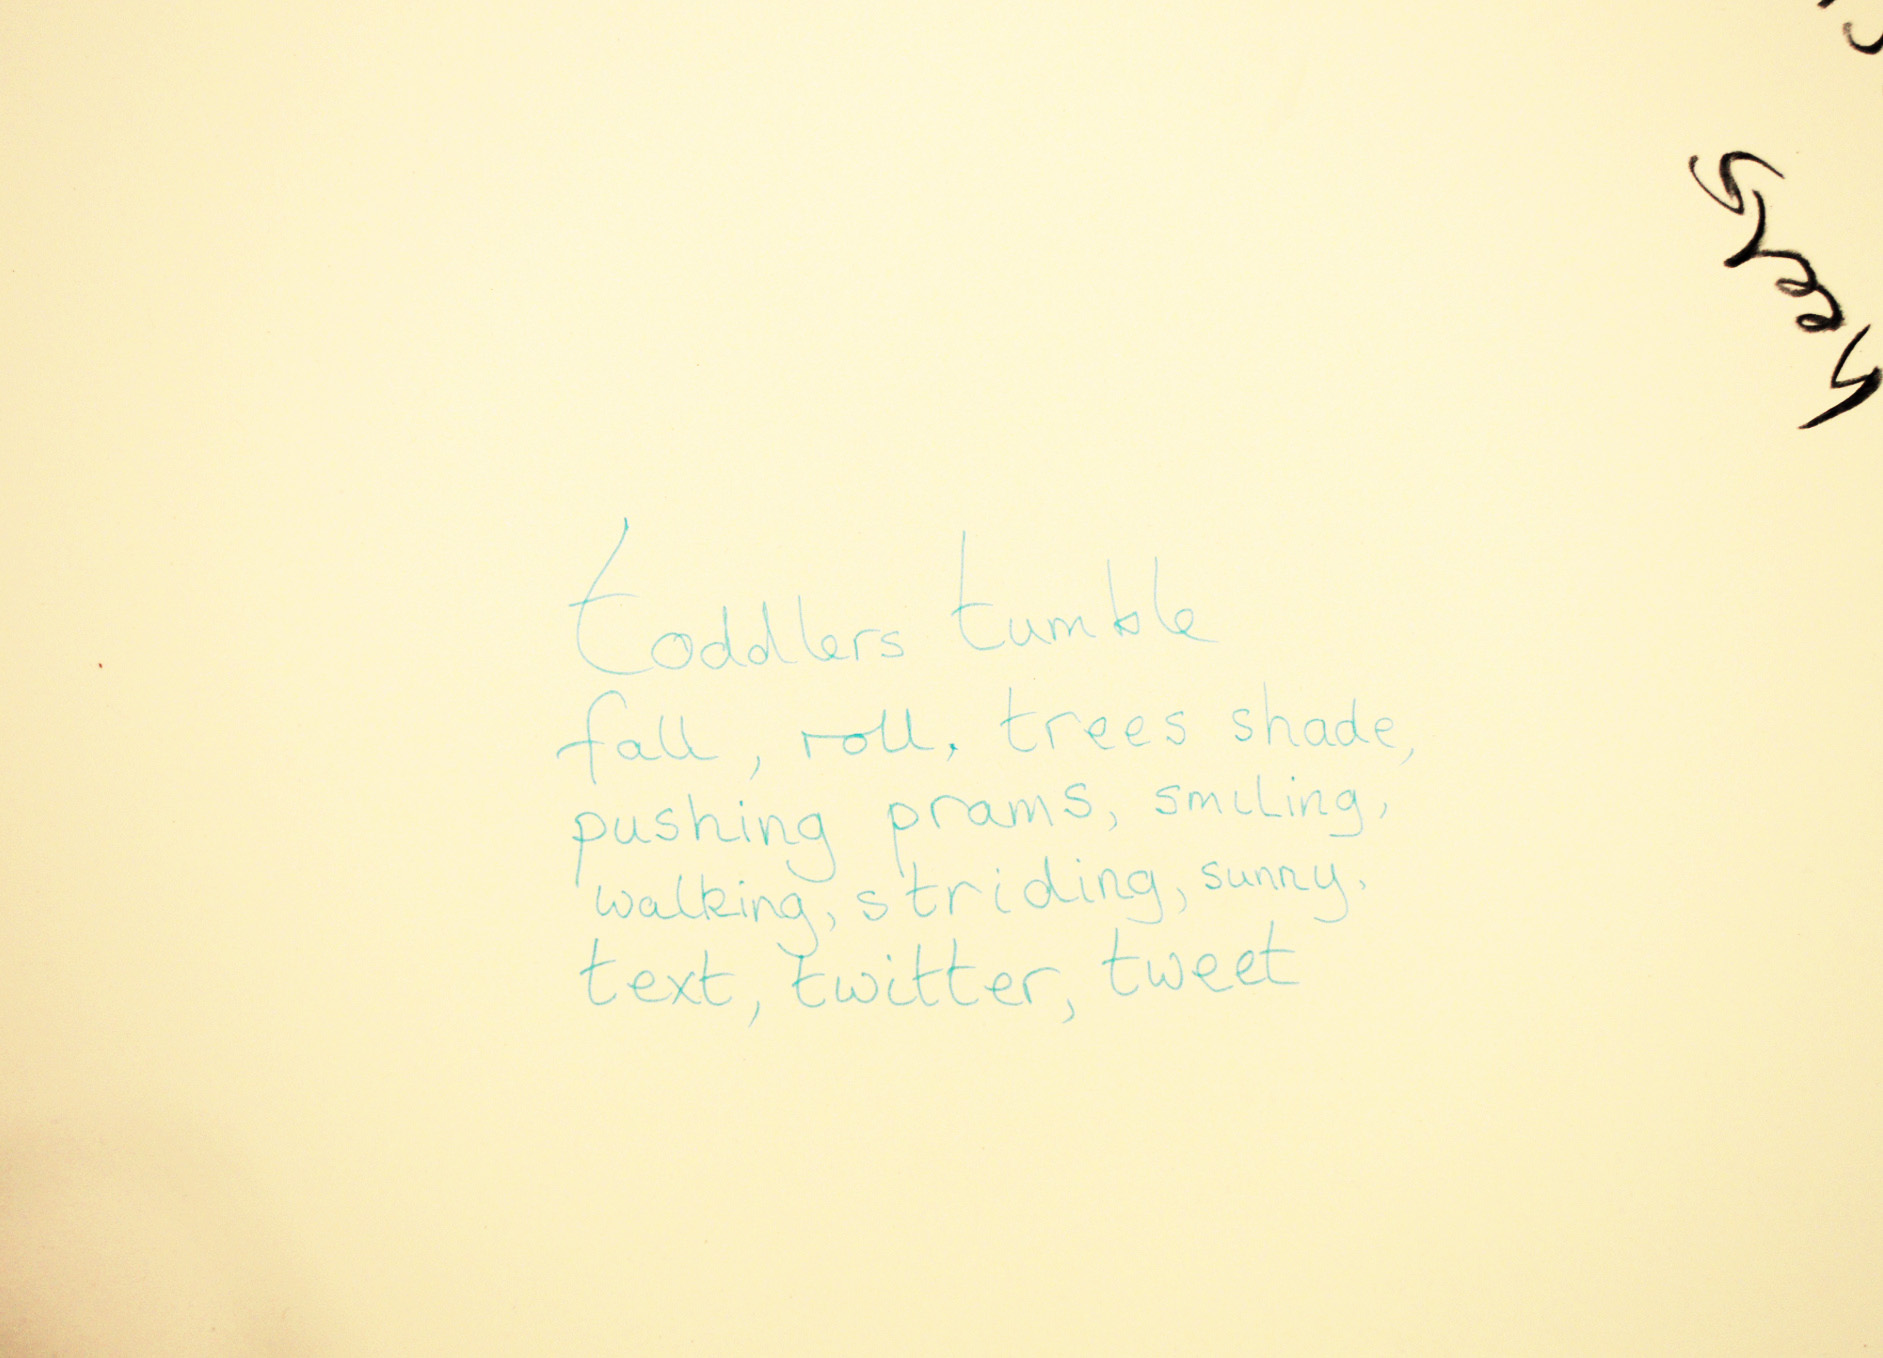 toddlers tumble
fall, roll, trees shade,
pushing prams, smiling,
walking, striding, sunny.
text, twitter, tweet